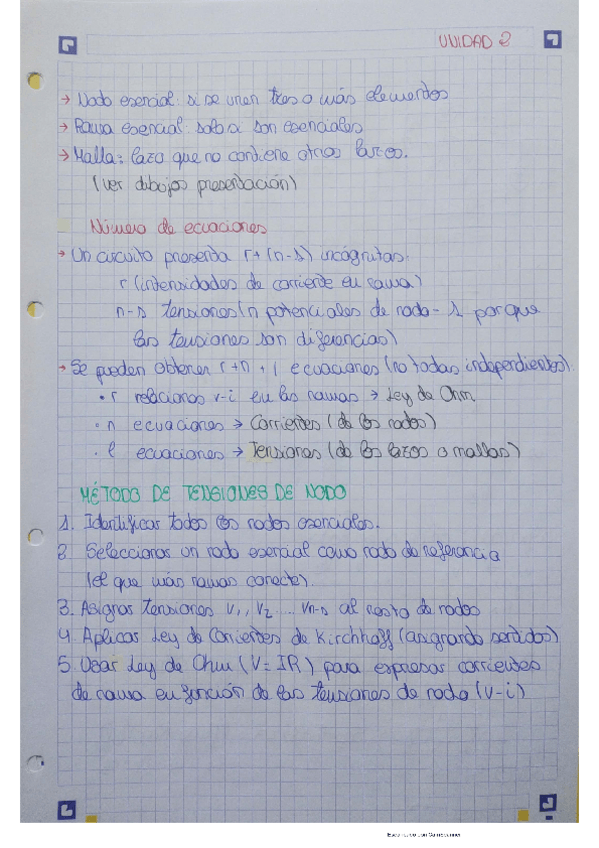 UNIDAD 2
→ Nodo esencial: si se unen tres o más elementos
→ Rama esencial: solo si son esenciales
→ Malla: lazo que no contiene otros lazos.
(ver dibujos presentación)
Número de ecuaciones
→ Un circuito presenta r+(n-1) incógnitas:
r (intensidades de corriente en rama)
n-1 tensiones (n potenciales de nodo - 1 porque
las tensiones son diferencias)
→ Se pueden obtener r+n+l ecuaciones (no todas independientes)
• r relaciones v-i en las ramas → Ley de Ohm
• n ecuaciones → Corrientes (de los nodos)
• l ecuaciones → Tensiones (de los lazos o mallas)
MÉTODO DE TENSIONES DE NODO
1. Identificar todos los nodos esenciales.
2. Seleccionar un nodo esencial como nodo de referencia
(el que más ramas conecte).
3. Asignar tensiones V₁, V₂ ... Vn-1 al resto de nodos
4. Aplicar Ley de Corrientes de Kirchhoff (asignando sentidos)
5. Usar Ley de Ohm (V=IR) para expresar corrientes
de rama en función de las tensiones de nodo (v-i)